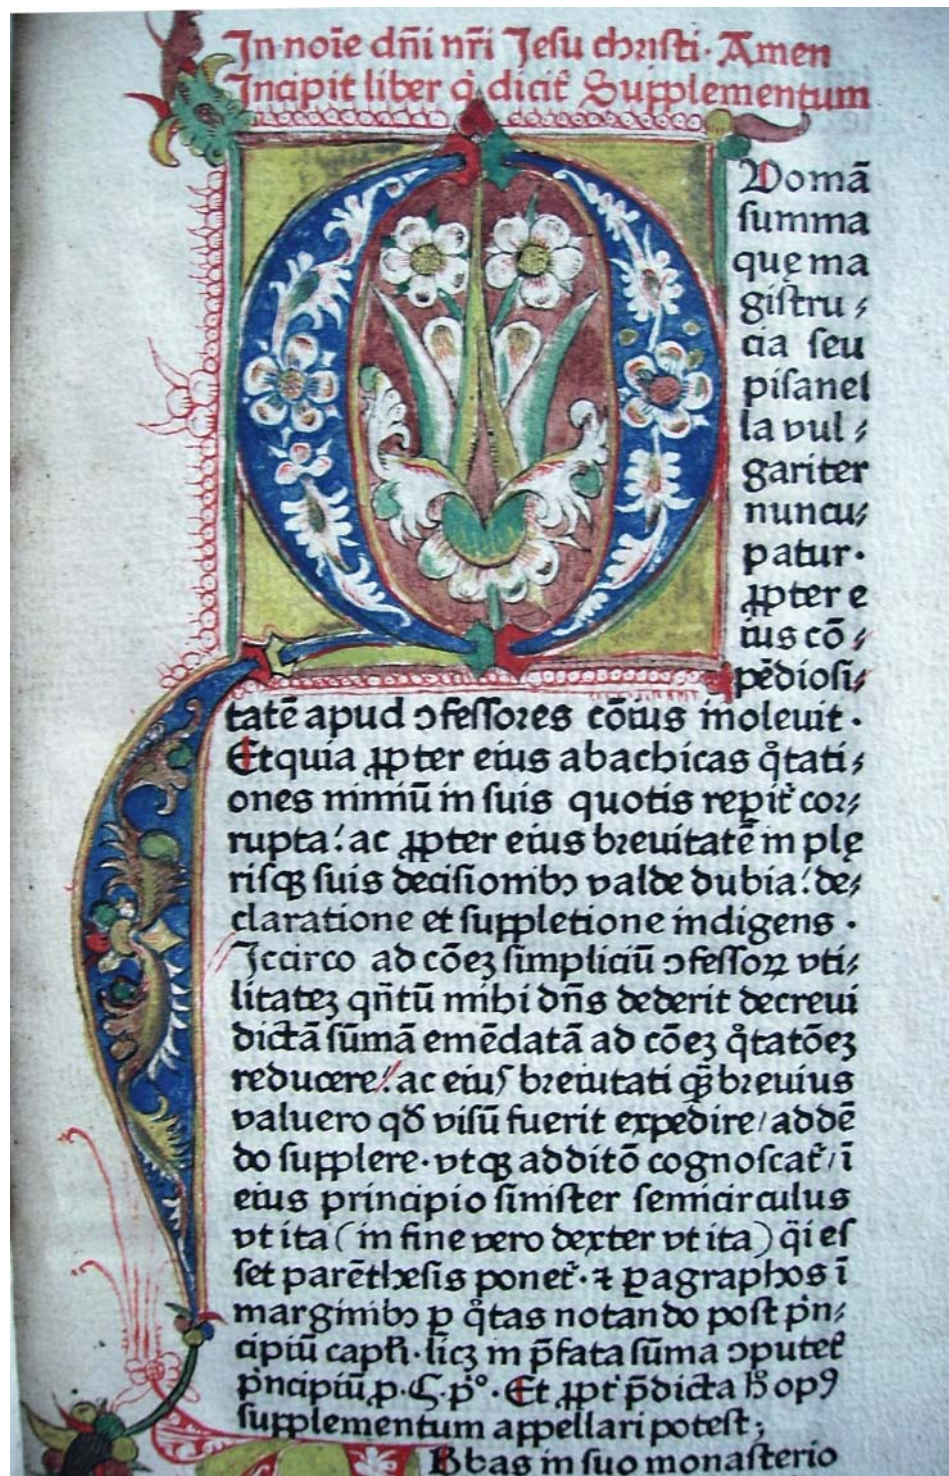 In noīe dn̄i nr̄i Jesu christi. Amen
Incipit liber q̇ dicit̄ Supplementum
Q
Uomā
summa
quę ma
gistru⸗
cia seu
pisanel
la vul⸗
gariter
nuncu⸗
patur.
ꝓpter e
ius cō⸗
pēdiosi⸗
tatē apud ↄfessores cōius inoleuit.
Et quia ꝓpter eius abachicas q̊tati⸗
ones nimiū in suis quotis rep̱it̄ cor⸗
rupta: ac ꝓpter eius breuitatē in plę
risqꝫ suis decisionibꝰ valde dubia: de⸗
claratione et suppletione indigens.
Iccirco ad cōeꝫ simpliciū ↄfessoꝝ vti⸗
litateꝫ qn̄tū mihi dn̄s dederit decreui
dictā sūmā emēdatā ad cōeꝫ q̊tatōeꝫ
reducere: ac eius breiutati qꝫ̄ breuius
valuero qđ visū fuerit expedire/ addē
do supplere. vtqꝫ additō cognoscat̄/ ī
eius principio sinister semicirculus
vt ita ( in fine vero dexter vt ita ) q̈i es
set parēthesis ponet̄. ⁊ ꝑagraphos ī
marginibꝰ ꝑ q̊tas notando post pn̍⸗
cipiū capłi. licꝫ in p̄fata sūma ↄputet̄
pn̍cipiū ꝓ. §. p̊. Et ꝓpt̄ p̄dicta h̊ opꝰ
supplementum appellari potest;
Bbas in suo monasterio